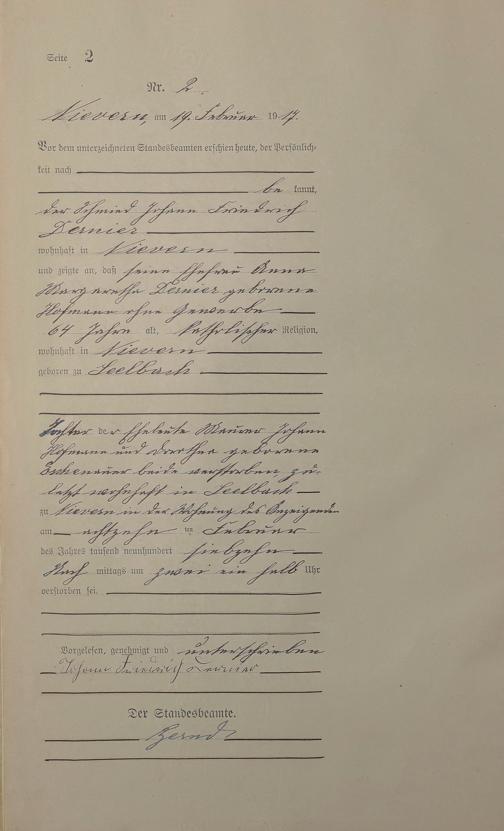 Seite 2
Nr. 2.
Nievern, am 19. Februar 1917.
Vor dem unterzeichneten Standesbeamten erschien heute, der Persönlich-
keit nach
be kannt,
der Schmied Johann Friedrich
Dernier
wohnhaft in Nievern
und zeigte an, daß seine Ehefrau Anna
Margaretha Dernier geborene
Hofmann ohne Gewerbe
64 Jahre alt, katholischer Religion,
wohnhaft in Nievern
geboren zu Seelbach
Tochter der Eheleute Maurer Johann
Hofmann und Dorothea geborene
Eschenauer beide verstorben zu-
letzt wohnhaft in Seelbach
zu Nievern in der Wohnung des Anzeigenden
am achtzehn ten Februar
des Jahres tausend neunhundert siebzehn
Nach mittags um zwei ein halb Uhr
verstorben sei.
Vorgelesen, genehmigt und unterschrieben
Johann Friedrich Dernier
Der Standesbeamte.